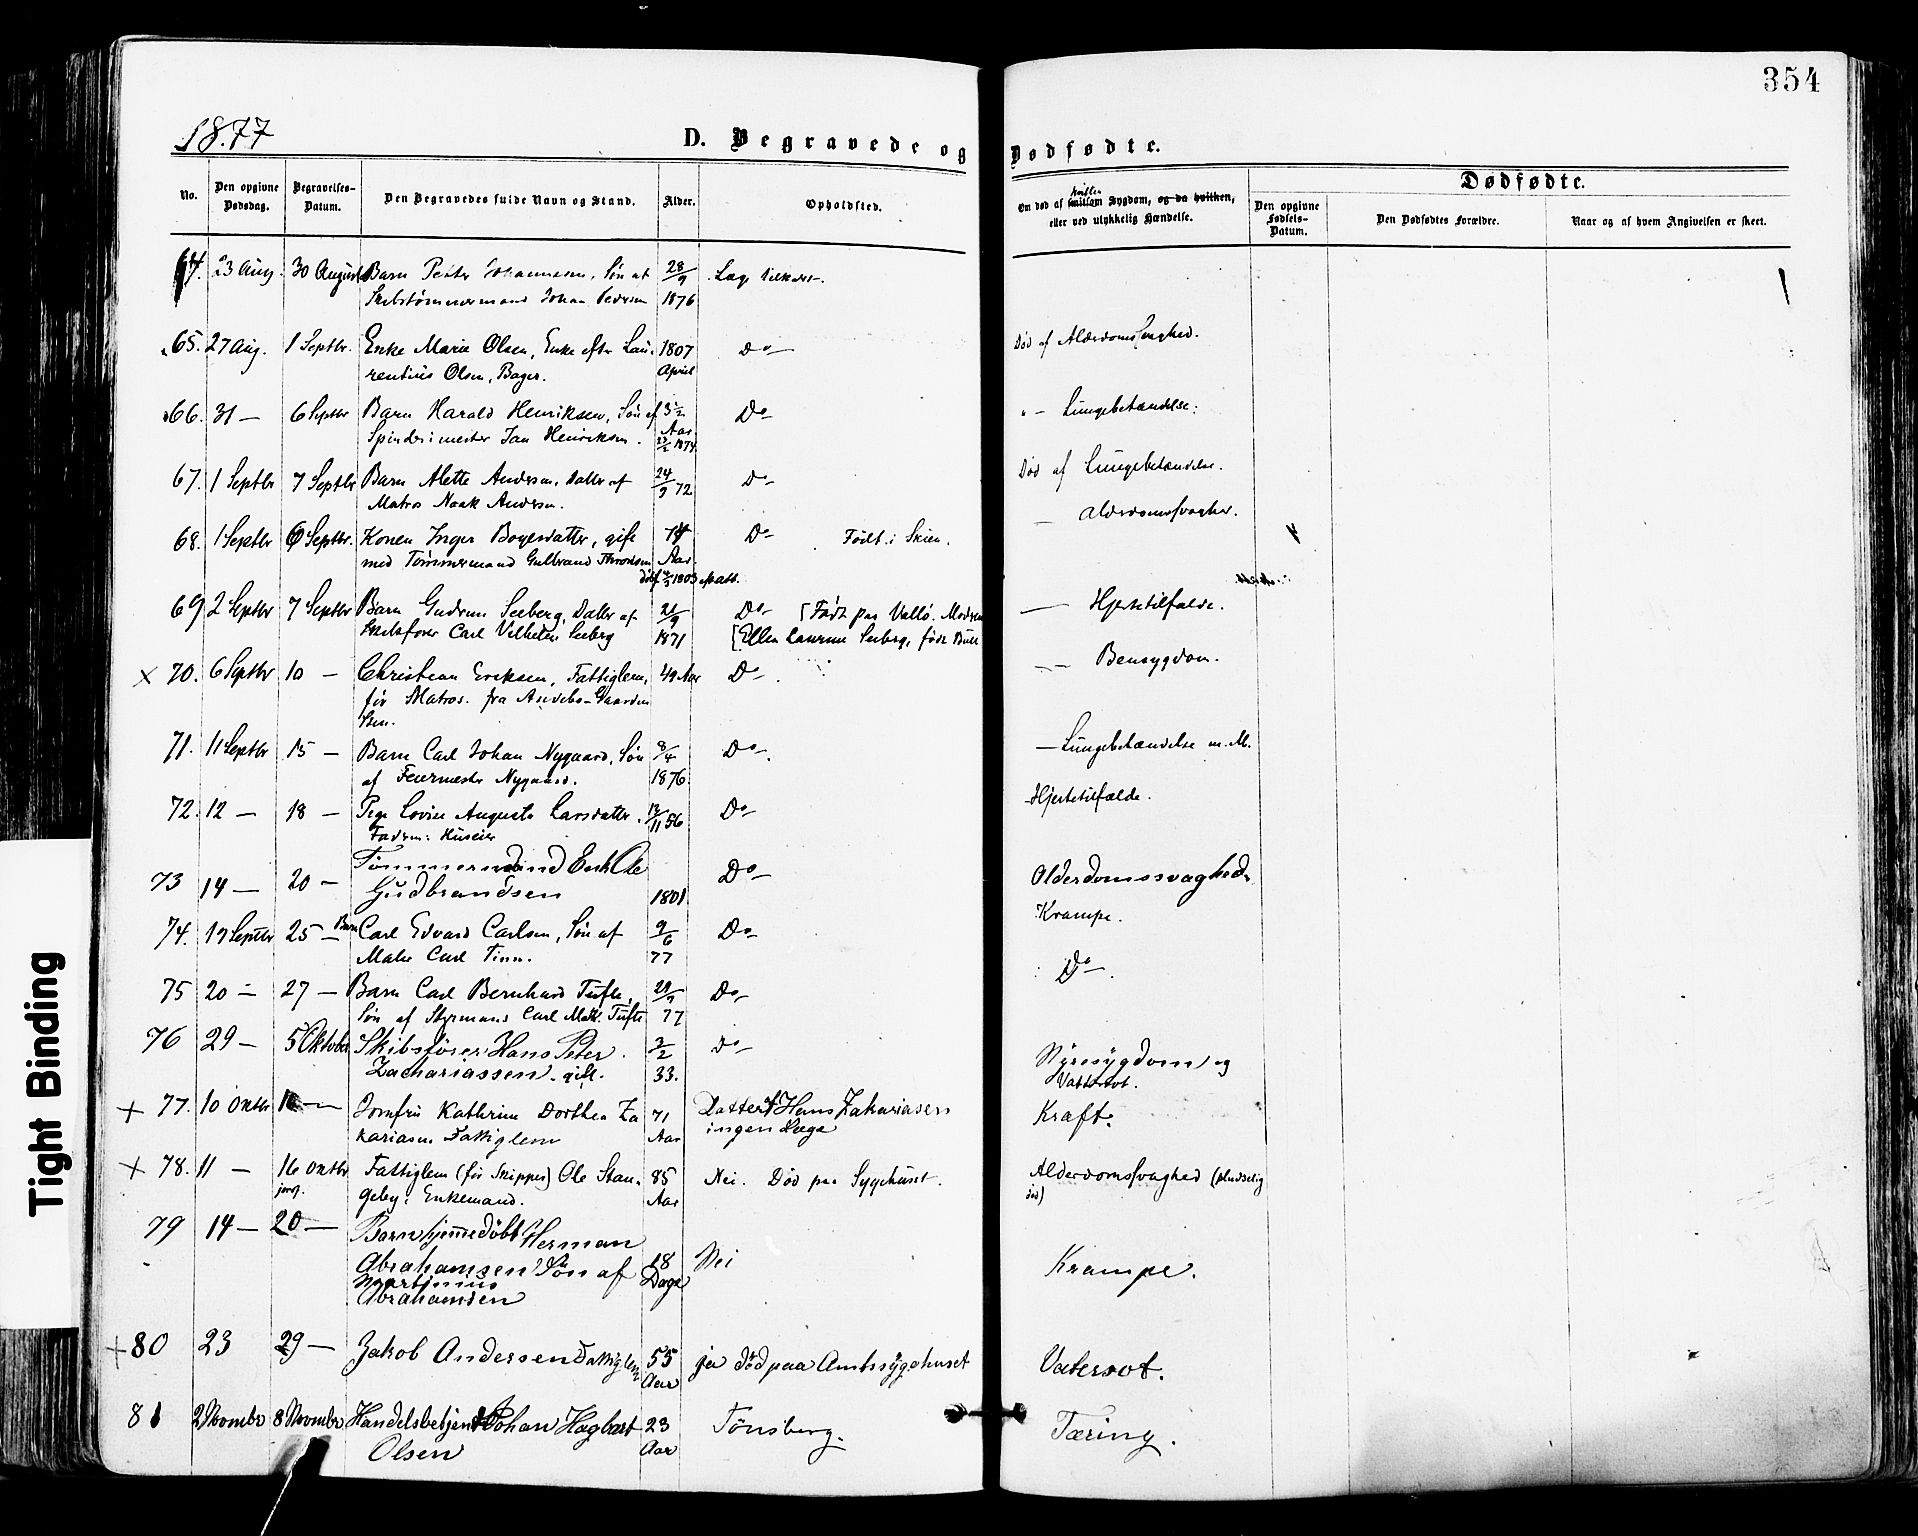 354
1877
D. Begravede og Dødfødte.
No.
Den opgivne Dødsdag.
Begravelses-Datum.
Den Begravedes fulde Navn og Stand.
Alder.
Opholdsted.
Om død af hvilken Sygdom, og da hvilken,
eller ved ulykkelig Hændelse.
Dødfødte.
Den opgivne Fødsels-Datum.
Den Dødfødtes Forældre.
Naar og af hvem Angivelsen er skeet.
64. 23 Aug. 30 August Barn Peter Johannesen, Søn af 28/9
Skibstømmermand Johan Pedersen 1876
65. 27 Aug. 1 Septbr. Enke Marie Olsen, Enke efter Lau- 1807 Do Død af Alderdomssvaghed.
rentius Olsen, Bager. April
66. 31 — 6 Septbr Barn Harald Henriksen, Søn af 3½ Do " — Lungebetændelse.
Spinderimester Jan Henriksen. Aar
67. 1 Septbr 7 Septbr Barn Alette Andersen, Datter af 24/9 72 Do Død af Lungebetændelse.
Matros Noak Andersen.
68. 1 Septbr 6 Septbr. Konen Inger Boyesdatter, gift 74 Do Født i Skien. — Alderdomssvaghed.
med Tømmermand Gulbrand Aar
69 2 Septbr 7 Septbr Barn Gudrun Seeberg, Datter af 21/9 Do [Født paa Vallø. Moderen — Hjertetilfælde.
Skibsfører Carl Vilhelm Seeberg 1871 [Ellen Laurine Seeberg, født Bull
× 70. 6 Septbr 10 — Christian Eriksen, Fattiglem, 49 Aar Do. — Bensygdom.
før Matros. fra Andebo-Gaarden
71. 11 Septbr 15 — Barn Carl Johan Nygaard, Søn 8/4 Do. — Lungebetændelse m. M.
af Feiermester Nygaard. 1876.
72. 12 — 18 — Pige Lovise Augusta Larsdatter. 56 Do — Hjertetilfælde.
Faderen: Huseier
73 14 — 20 — Tømmermand Enkm Ole Do Olderdomssvaghed.
Gudbrandsen 1801
74. 19 Septbr 25 — Barn Carl Edvard Carlsen, Søn af 9/6 Do Krampe.
Maler Carl Finn. 77
75 20 — 27 — Barn Carl Bernhard Tufte, Do Do.
Søn af Styrmand Carl Tufte 77
76 29 — 5 Oktober Skibsfører Hans Peter 3/2 Do Nyresygdom og
Zachariassen. gift. 33. Vattersot.
+ 77. 10 Oktbr Jomfru Kathrine Dorthea Za 71 Datter af Hans Zakariasen Kræft.
kariasen Fattiglem Aar ingen Læge
+ 78. 11 — 16 Oktbr Fattiglem (før Skipper) Ole Stan- 85 Nei. Død paa Sygehuset. Alderdomssvaghed (pludselig
geby. Enkemand. Aar død)
79 14 — 20 — Barn hjemmedøbt Herman
Abrahamsen Søn af 18 Nei Krampe.
Martinius Dage
Abrahamsen
+ 80 23 29 — Jakob Andersen Fattiglem 55 ja død paa Amtssygehuset Vatersot.
Aar
81 2 Novmbr 8 Novmbr Handelsbetjent Johan Hagbart 23 Tönsberg. Tæring.
Olsen Aar
Tight Binding